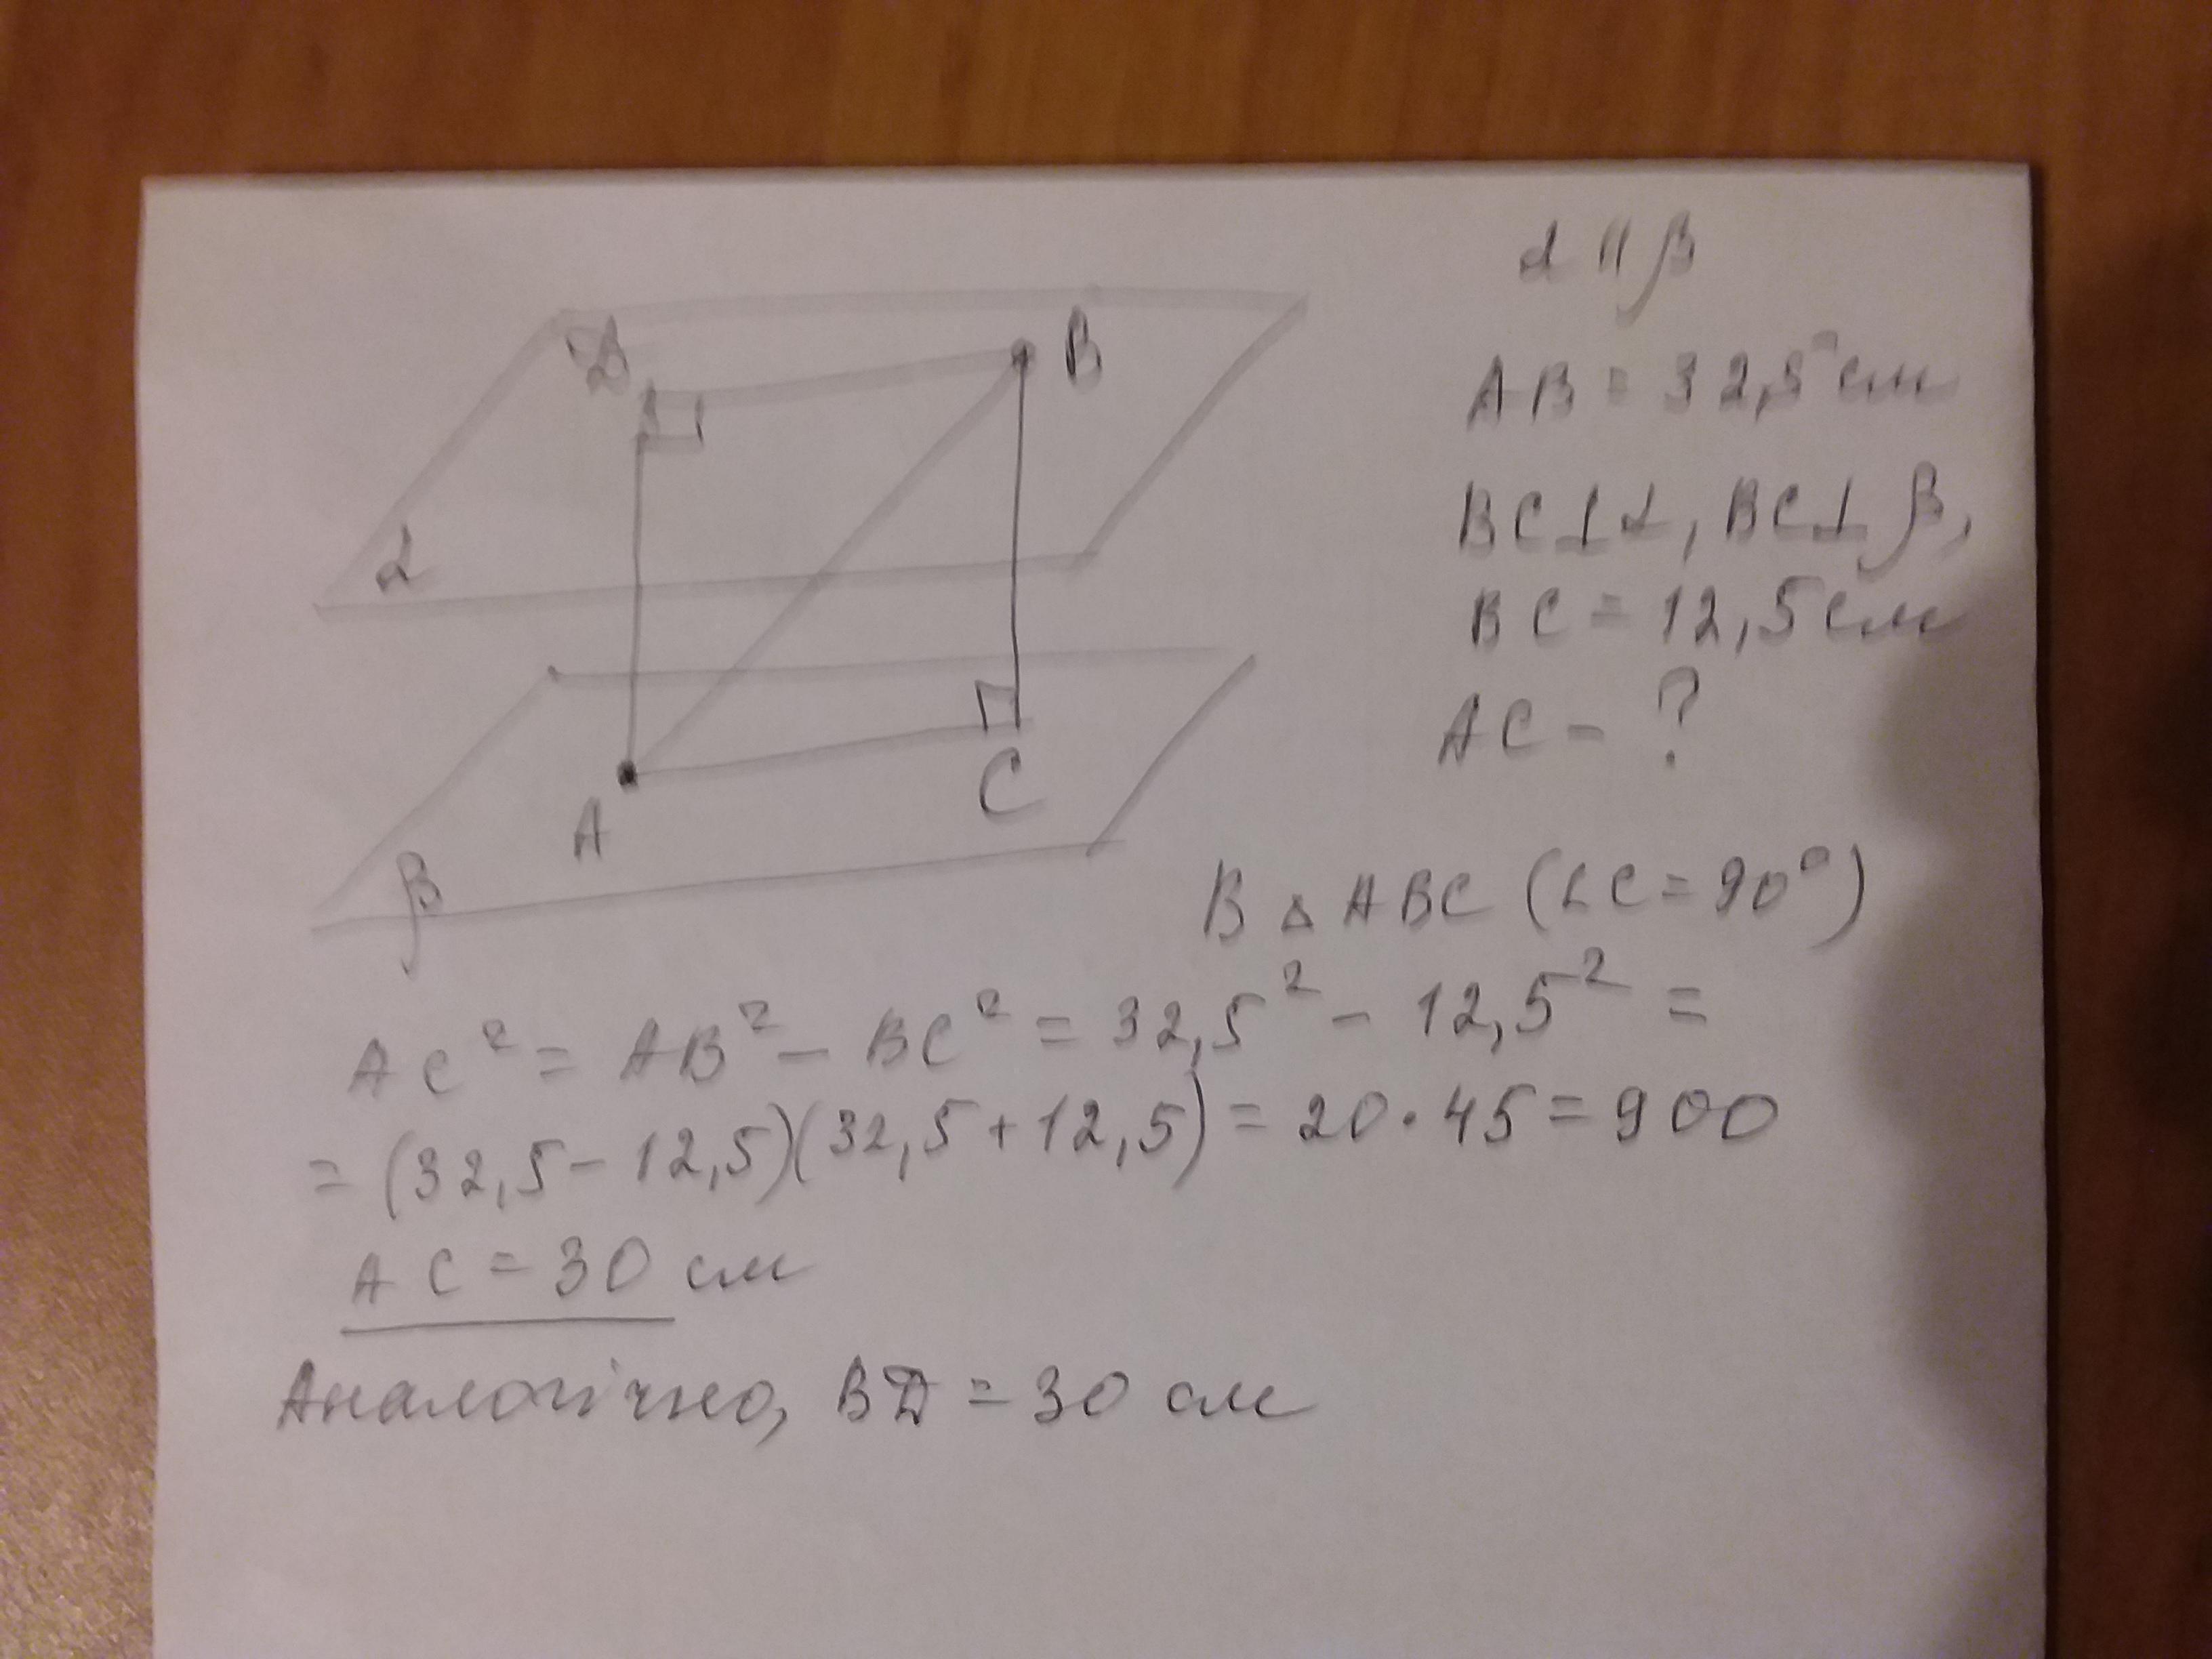 α || β
AB = 32,5 см
BC ⊥ α, BC ⊥ β,
BC = 12,5 см
AC - ?
D
B
α
A
C
β
В △ ABC (∠C = 90°)
AC² = AB² - BC² = 32,5² - 12,5² =
= (32,5 - 12,5)(32,5 + 12,5) = 20 · 45 = 900
AC = 30 см
Аналогічно, BD = 30 см